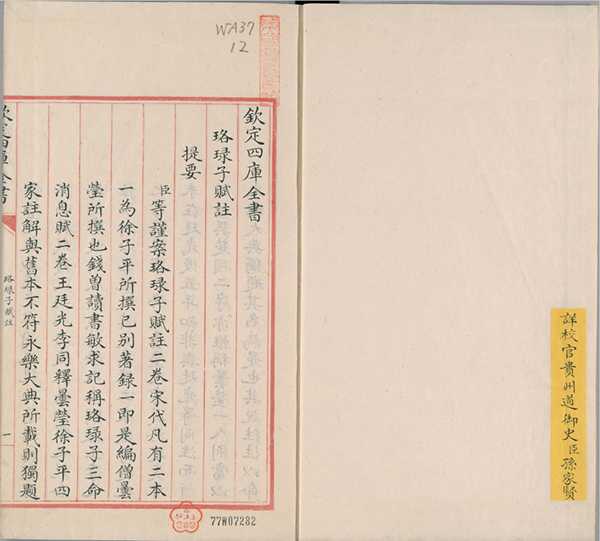 詳校官貴州道御史臣孫家賢
WA37
12
欽定四庫全書
珞琭子賦註
提要
臣等謹案珞琭子賦註二卷宋代凡有二本
一為徐子平所撰已别著録一即是編僧曇
瑩所撰也錢曾讀書敏求記稱珞琭子三命
消息賦二卷王廷光李同釋曇瑩徐子平四
家註解與舊本不符永樂大典所載則獨題
欽定四庫全書
珞琭子賦註
一
77W07282